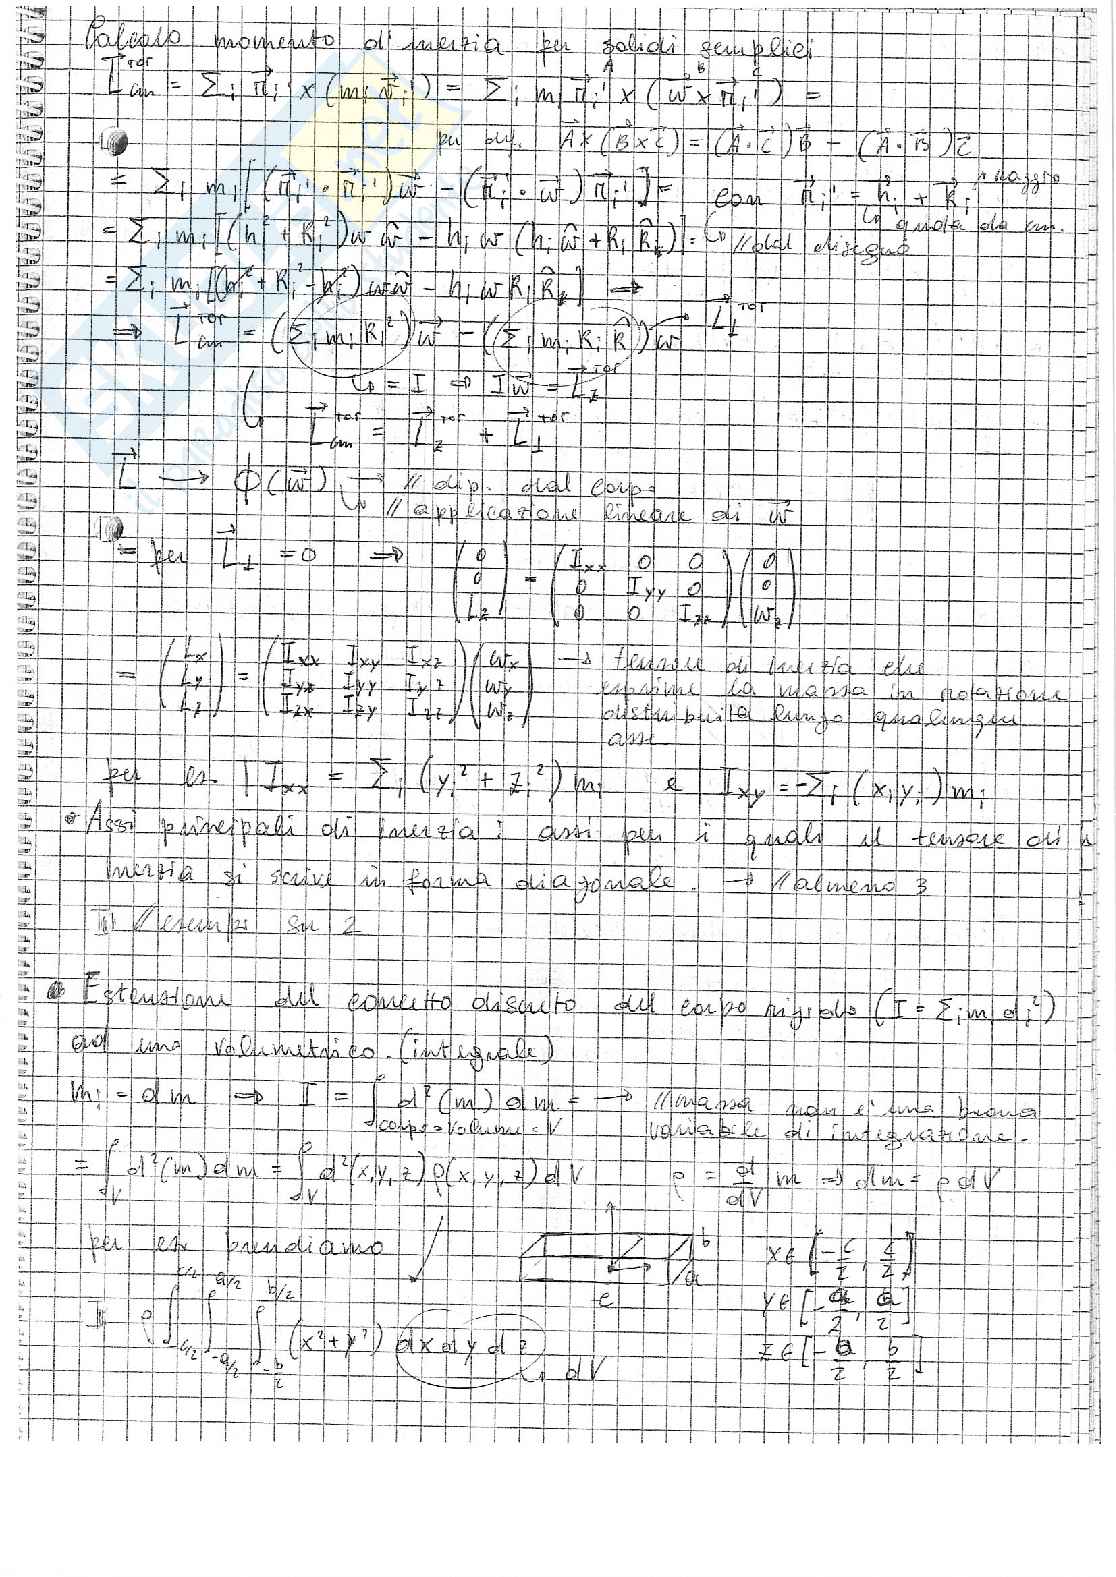 Calcolo momento d'inerzia per solidi semplici
L⃗cm^TOT = Σi r⃗i' × (mi v⃗i') = Σi mi r⃗i' × (w⃗ × r⃗i') =
per def. A⃗×(B⃗×C⃗) = (A⃗·C⃗)B⃗ − (A⃗·B⃗)C⃗
= Σi mi [(r⃗i'·r⃗i')w⃗ − (r⃗i'·w⃗)r⃗i'] = con r⃗i' = h⃗i + R⃗i raggio
quota da cm.
= Σi mi [(hi² + Ri²)w ŵ − hi w (hi ŵ + Ri R̂i)] = // dal disegno
= Σi mi [(hi² + Ri² − hi²) w ŵ − hi w Ri R̂i] ⇒
⇒ L⃗cm^TOT = (Σi mi Ri²) w⃗ − (Σi mi Ri R̂) w → L⃗⊥^TOT
↳ = I ⇒ I w⃗ = L⃗z^TOT
L⃗cm^TOT = L⃗z^TOT + L⃗⊥^TOT
L⃗ → ϕ(w⃗) → // dip. dal corpo
↳ // applicazione lineare di w⃗
= per L⃗⊥ = 0 ⇒ (0 0 Lz) = (Ixx 0 0 / 0 Iyy 0 / 0 0 Izz) (0 0 wz)
= (Lx Ly Lz) = (Ixx Ixy Ixz / Iyx Iyy Iyz / Izx Izy Izz) (wx wy wz) → tensore di inerzia che
esprime la massa in rotazione
distribuita lungo qualunque
asse
per es. | Ixx = Σi (yi² + zi²) mi e Ixy = −Σi (xi yi) mi
• Assi principali di inerzia: assi per i quali il tensore di
inerzia si scrive in forma diagonale. → // almeno 3
su 2
• Estensione del concetto discreto del corpo rigido (I = Σi mi di²)
ad uno volumetrico. (integrale)
mi → dm ⇒ I = ∫ d²(m) dm = → // massa non è una buona
corpo = volume = V variabile di integrazione.
= ∫V d²(m) dm = ∫V d²(x,y,z) ρ(x,y,z) dV ρ = d/dV m ⇒ dm = ρ dV
per es. prendiamo
b
a
c
x ∈ [−c/2, c/2]
y ∈ [−a/2, a/2]
z ∈ [−b/2, b/2]
I = ρ ∫−c/2^c/2 ∫−a/2^a/2 ∫−b/2^b/2 (x² + y²) dx dy dz
↳ dV